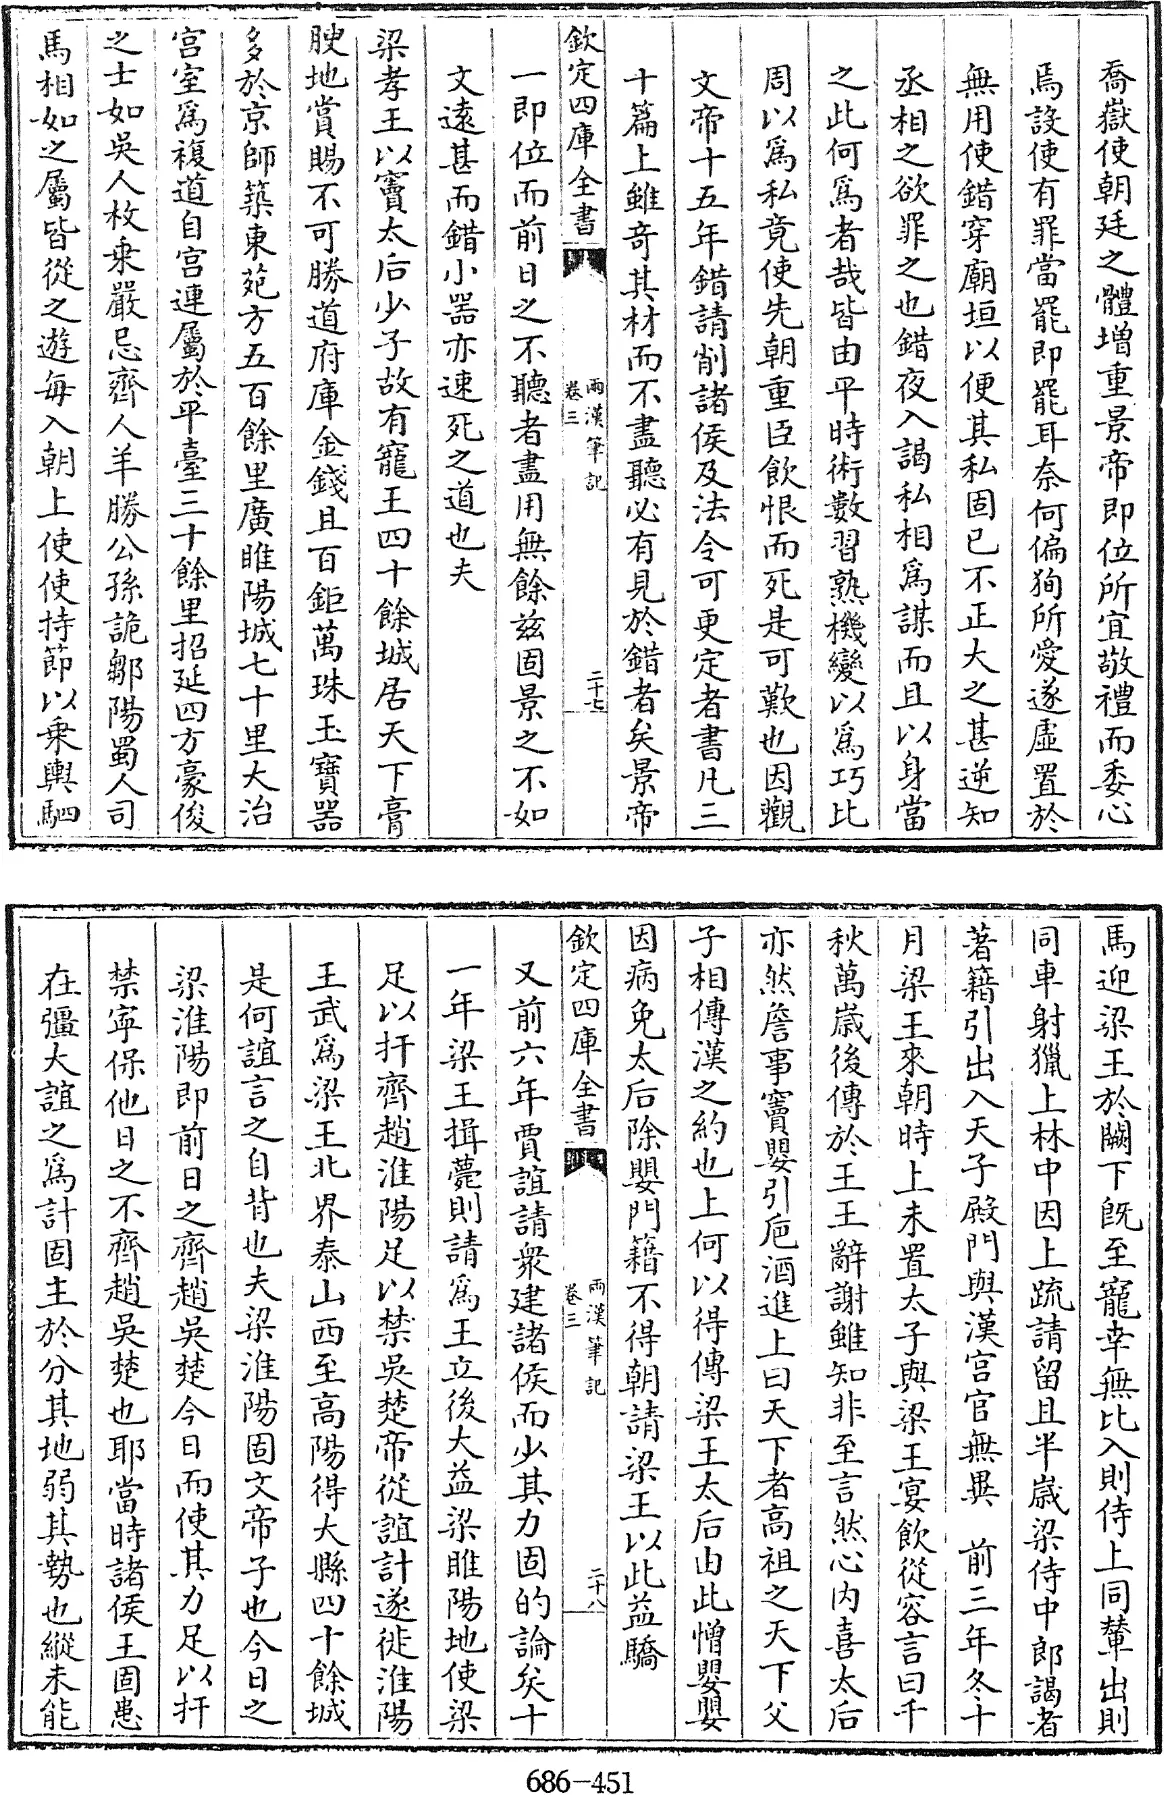 喬嶽使朝廷之體增重景帝即位所宜敬禮而委心
焉設使有罪當罷即罷耳奈何偏狥所愛遂虛置於
無用使錯穿廟垣以便其私固已不正大之甚逆知
丞相之欲罪之也錯夜入謁私相為謀而且以身當
之此何為者哉皆由平時術數習熟機變以為巧比
周以為私竟使先朝重臣飲恨而死是可歎也因觀
文帝十五年錯請削諸侯及法令可更定者書凡三
十篇上雖奇其材而不盡聽必有見於錯者矣景帝
欽定四庫全書
兩漢筆記
卷三
二十七
一即位而前日之不聽者盡用無餘兹固景之不如
文遠甚而錯小器亦速死之道也夫
梁孝王以竇太后少子故有寵王四十餘城居天下膏
腴地賞賜不可勝道府庫金錢且百鉅萬珠玉寶器
多於京師築東苑方五百餘里廣睢陽城七十里大治
宮室為複道自宮連屬於平臺三十餘里招延四方豪俊
之士如吳人枚乗嚴忌齊人羊勝公孫詭鄒陽蜀人司
馬相如之屬皆從之遊每入朝上使使持節以乗輿駟
馬迎梁王於闕下既至寵幸無比入則侍上同輦出則
同車射獵上林中因上疏請留且半歲梁侍中郎謁者
著籍引出入天子殿門與漢宮官無異 前三年冬十
月梁王來朝時上未置太子與梁王宴飲從容言曰千
秋萬歲後傳於王王辭謝雖知非至言然心内喜太后
亦然詹事竇嬰引卮酒進上曰天下者高祖之天下父
子相傳漢之約也上何以得傳梁王太后由此憎嬰嬰
因病免太后除嬰門籍不得朝請梁王以此益驕
欽定四庫全書
兩漢筆記
卷三
二十八
文前六年賈誼請衆建諸侯而少其力固的論矣十
一年梁王揖薨則請為王立後大益梁睢陽地使梁
足以扞齊趙淮陽足以禁吳楚帝從誼計遂徙淮陽
王武為梁王北界泰山西至高陽得大縣四十餘城
是何誼言之自背也夫梁淮陽固文帝子也今日之
梁淮陽即前日之齊趙吳楚今日而使其力足以扞
禁寧保他日之不齊趙吳楚也耶當時諸侯王固患
在彊大誼之為計固主於分其地弱其勢也縱未能
686-451